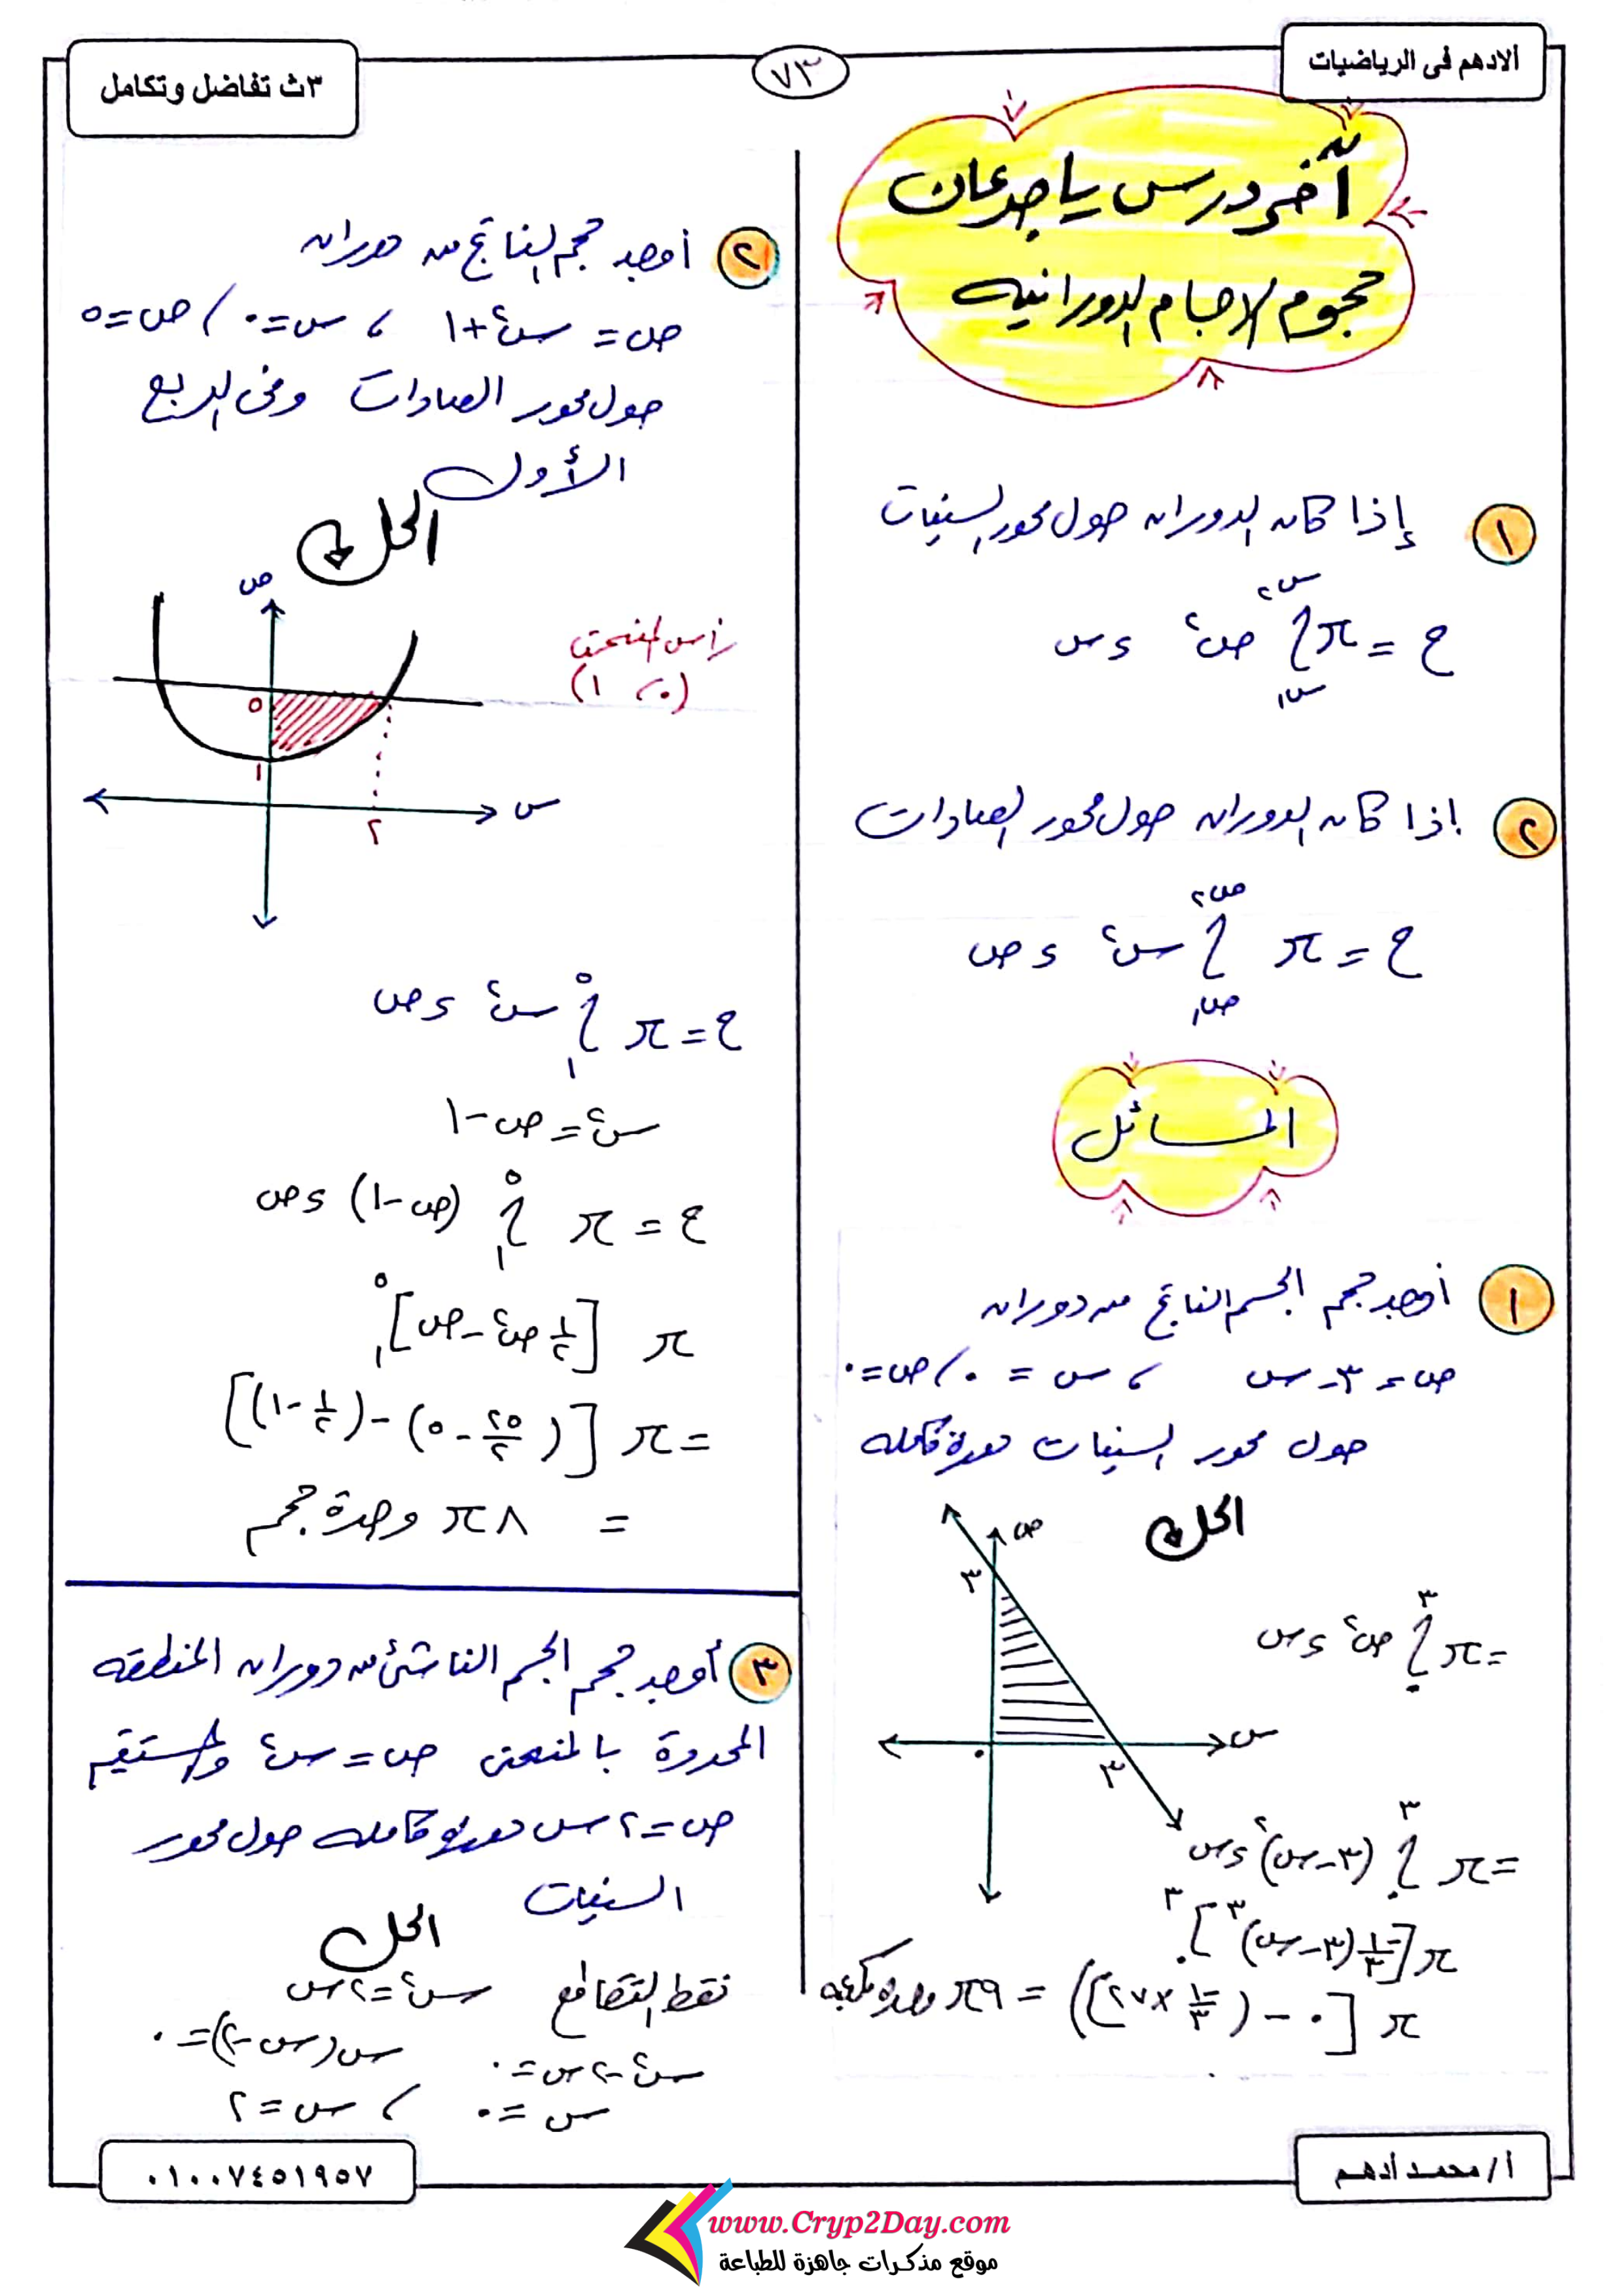 الادهم فى الرياضيات
٧٣
٣ث تفاضل وتكامل
آخر درس يا جدعان
حجوم الاجسام الدورانيه
١ إذا كان الدوران حول محور السينات
ح = π ∫ ص² ءس
س١ س٢
٢ اذا كان الدوران حول محور الصادات
ح = π ∫ س² ءص
ص١ ص٢
المسائل
١ أوجد حجم الجسم الناتج من دوران
ص = ٣ - س ، س = ٠ ، ص = ٠
حول محور السينات دورة كامله
الحل
ص
٣
س
٣
٠
= π ∫٠^٣ ص² ءس
= π ∫٠^٣ (٣ - س)² ءس
π [-١/٣ (٣ - س)^٣]٠^٣
π [٠ - (-١/٣ × ٢٧)] = ٩π وحدة مكعبه
٢ أوجد حجم الناتج من دوران
ص = س² + ١ ، س = ٠ ، ص = ٥
حول محور الصادات وفى الربع
الأول
الحل
ص
رأس المنحنى
(٠ ، ١)
٥
١
س
٢
ح = π ∫١^٥ س² ءص
س² = ص - ١
ح = π ∫١^٥ (ص - ١) ءص
π [١/٢ ص² - ص]١^٥
= π [(٢٥/٢ - ٥) - (١/٢ - ١)]
= ٨π وحدة حجم
٣ أوجد حجم الجسم الناشئ من دوران المنطقه
المحدودة بالمنحنى ص = س² والمستقيم
ص = ٢س دورة كامله حول محور
السينات
الحل
نقط التقاطع س² = ٢س
س² - ٢س = ٠ س(س - ٢) = ٠
س = ٠ ، س = ٢
أ / محمد أدهم
٠١٠٠٧٤٥١٩٥٧
www.Cryp2Day.com
موقع مذكرات جاهزة للطباعة